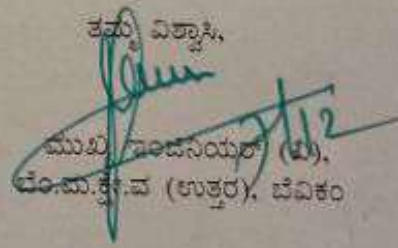 ತಮ್ಮ ವಿಶ್ವಾಸಿ,
7/12
ಮುಖ್ಯ ಇಂಜಿನಿಯರ್ (ವಿ),
ಬೆಂ.ಮ.ಕ್ಷೇ.ವ (ಉತ್ತರ), ಬೆವಿಕಂ